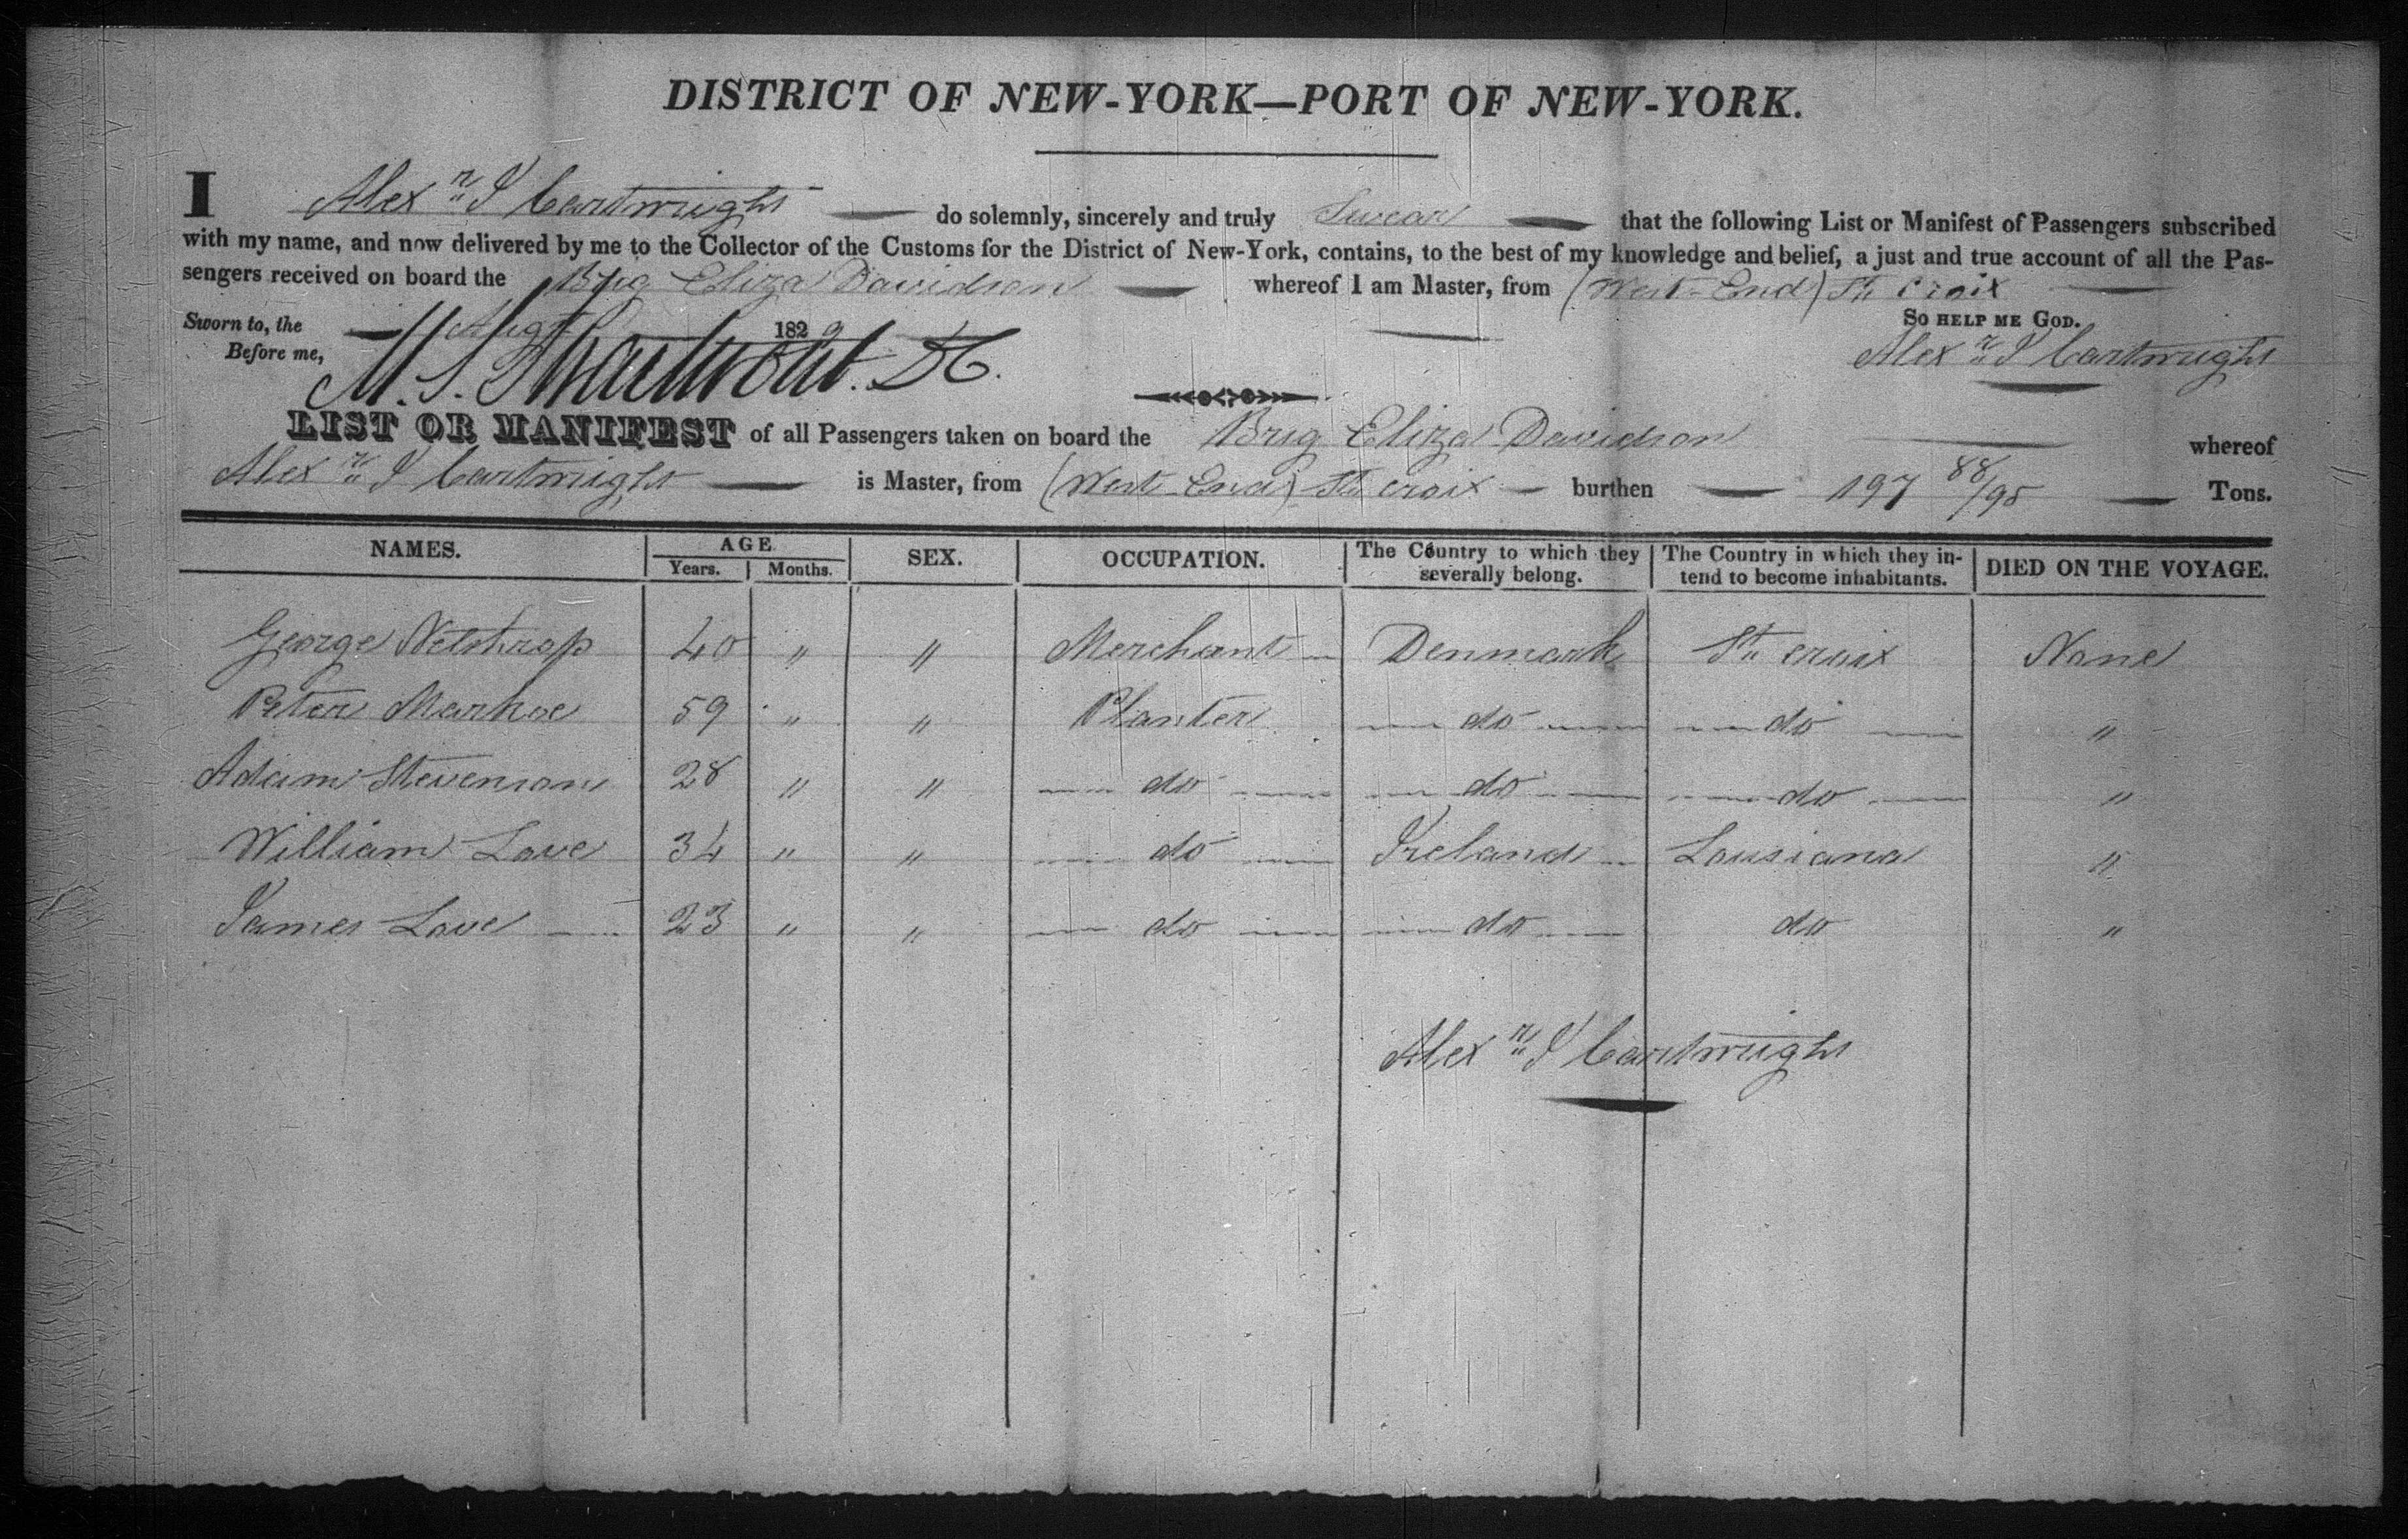 DISTRICT OF NEW-YORK—PORT OF NEW-YORK.
I Alexr I Cartwright do solemnly, sincerely and truly Swear that the following List or Manifest of Passengers subscribed
with my name, and now delivered by me to the Collector of the Customs for the District of New-York, contains, to the best of my knowledge and belief, a just and true account of all the Pas-
sengers received on board the Brig Eliza Davidson whereof I am Master, from (West End) St Croix
Sworn to, the Augt 1829 SO HELP ME GOD.
Before me, M. S. Swartwout. Alexr I Cartwright
LIST OR MANIFEST of all Passengers taken on board the Brig Eliza Davidson whereof
Alexr I Cartwright is Master, from (West End) St Croix burthen 197 88/95 Tons.
NAMES. AGE Years. Months. SEX. OCCUPATION. The Country to which they severally belong. The Country in which they in-tend to become inhabitants. DIED ON THE VOYAGE.
George Nelthrop 40 " " Merchant Denmark St Croix None
Peter Markoe 59 " " Planter do do "
Adam Stevenson 28 " " do do do "
William Love 34 " " do Ireland Lousiana "
James Love 23 " " do do do "
Alexr I Cartwright